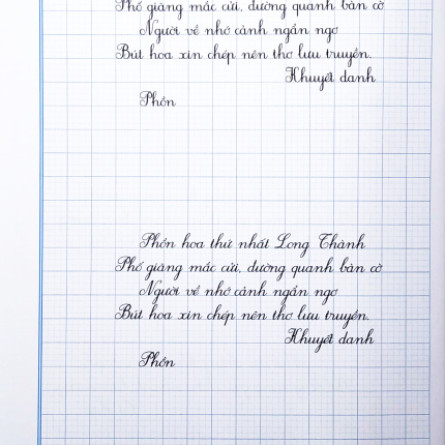 Phố giăng mắc cửi, đường quanh bàn cờ
Người về nhớ cảnh ngẩn ngơ
Bút hoa xin chép nên thơ lưu truyền.
Khuyết danh
Phồn
Phồn hoa thứ nhất Long Thành
Phố giăng mắc cửi, đường quanh bàn cờ
Người về nhớ cảnh ngẩn ngơ
Bút hoa xin chép nên thơ lưu truyền.
Khuyết danh
Phồn